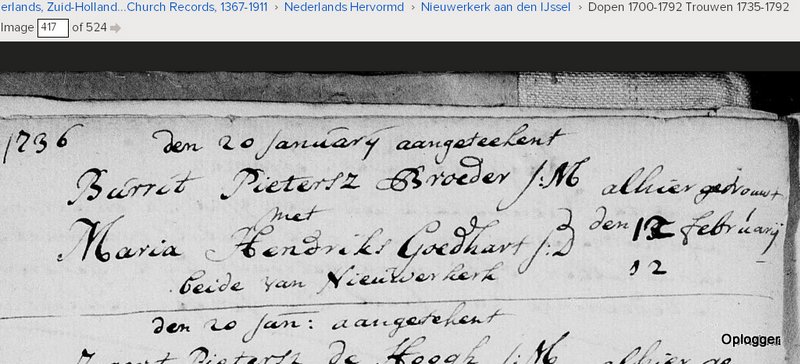 erlands, Zuid-Holland...Church Records, 1367-1911 › Nederlands Hervormd › Nieuwerkerk aan den IJssel › Dopen 1700-1792 Trouwen 1735-1792
Image 417 of 524
1736 den 20 January aangeteekent
Burrit Pietersz Broeder J:M alhier getrouwt
met
Maria Hendriks Goedhart J:D den 12 february
12
beide van Nieuwerkerk
den 20 Jan: aangetekent
Pietersz de Hoogh J:M alhier ge
Oplogger